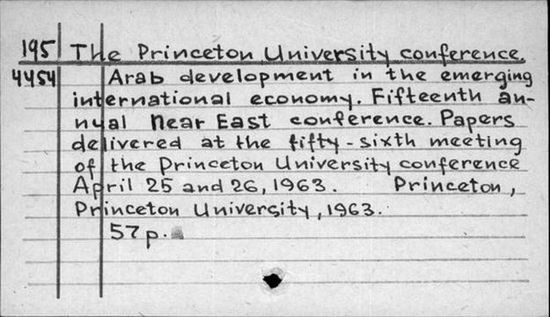 195 The Princeton University conference.
4454 Arab development in the emerging
international economy. Fifteenth an-
nual Near East conference. Papers
delivered at the fifty-sixth meeting
of the Princeton University conference
April 25 and 26, 1963. Princeton,
Princeton University, 1963.
57p.